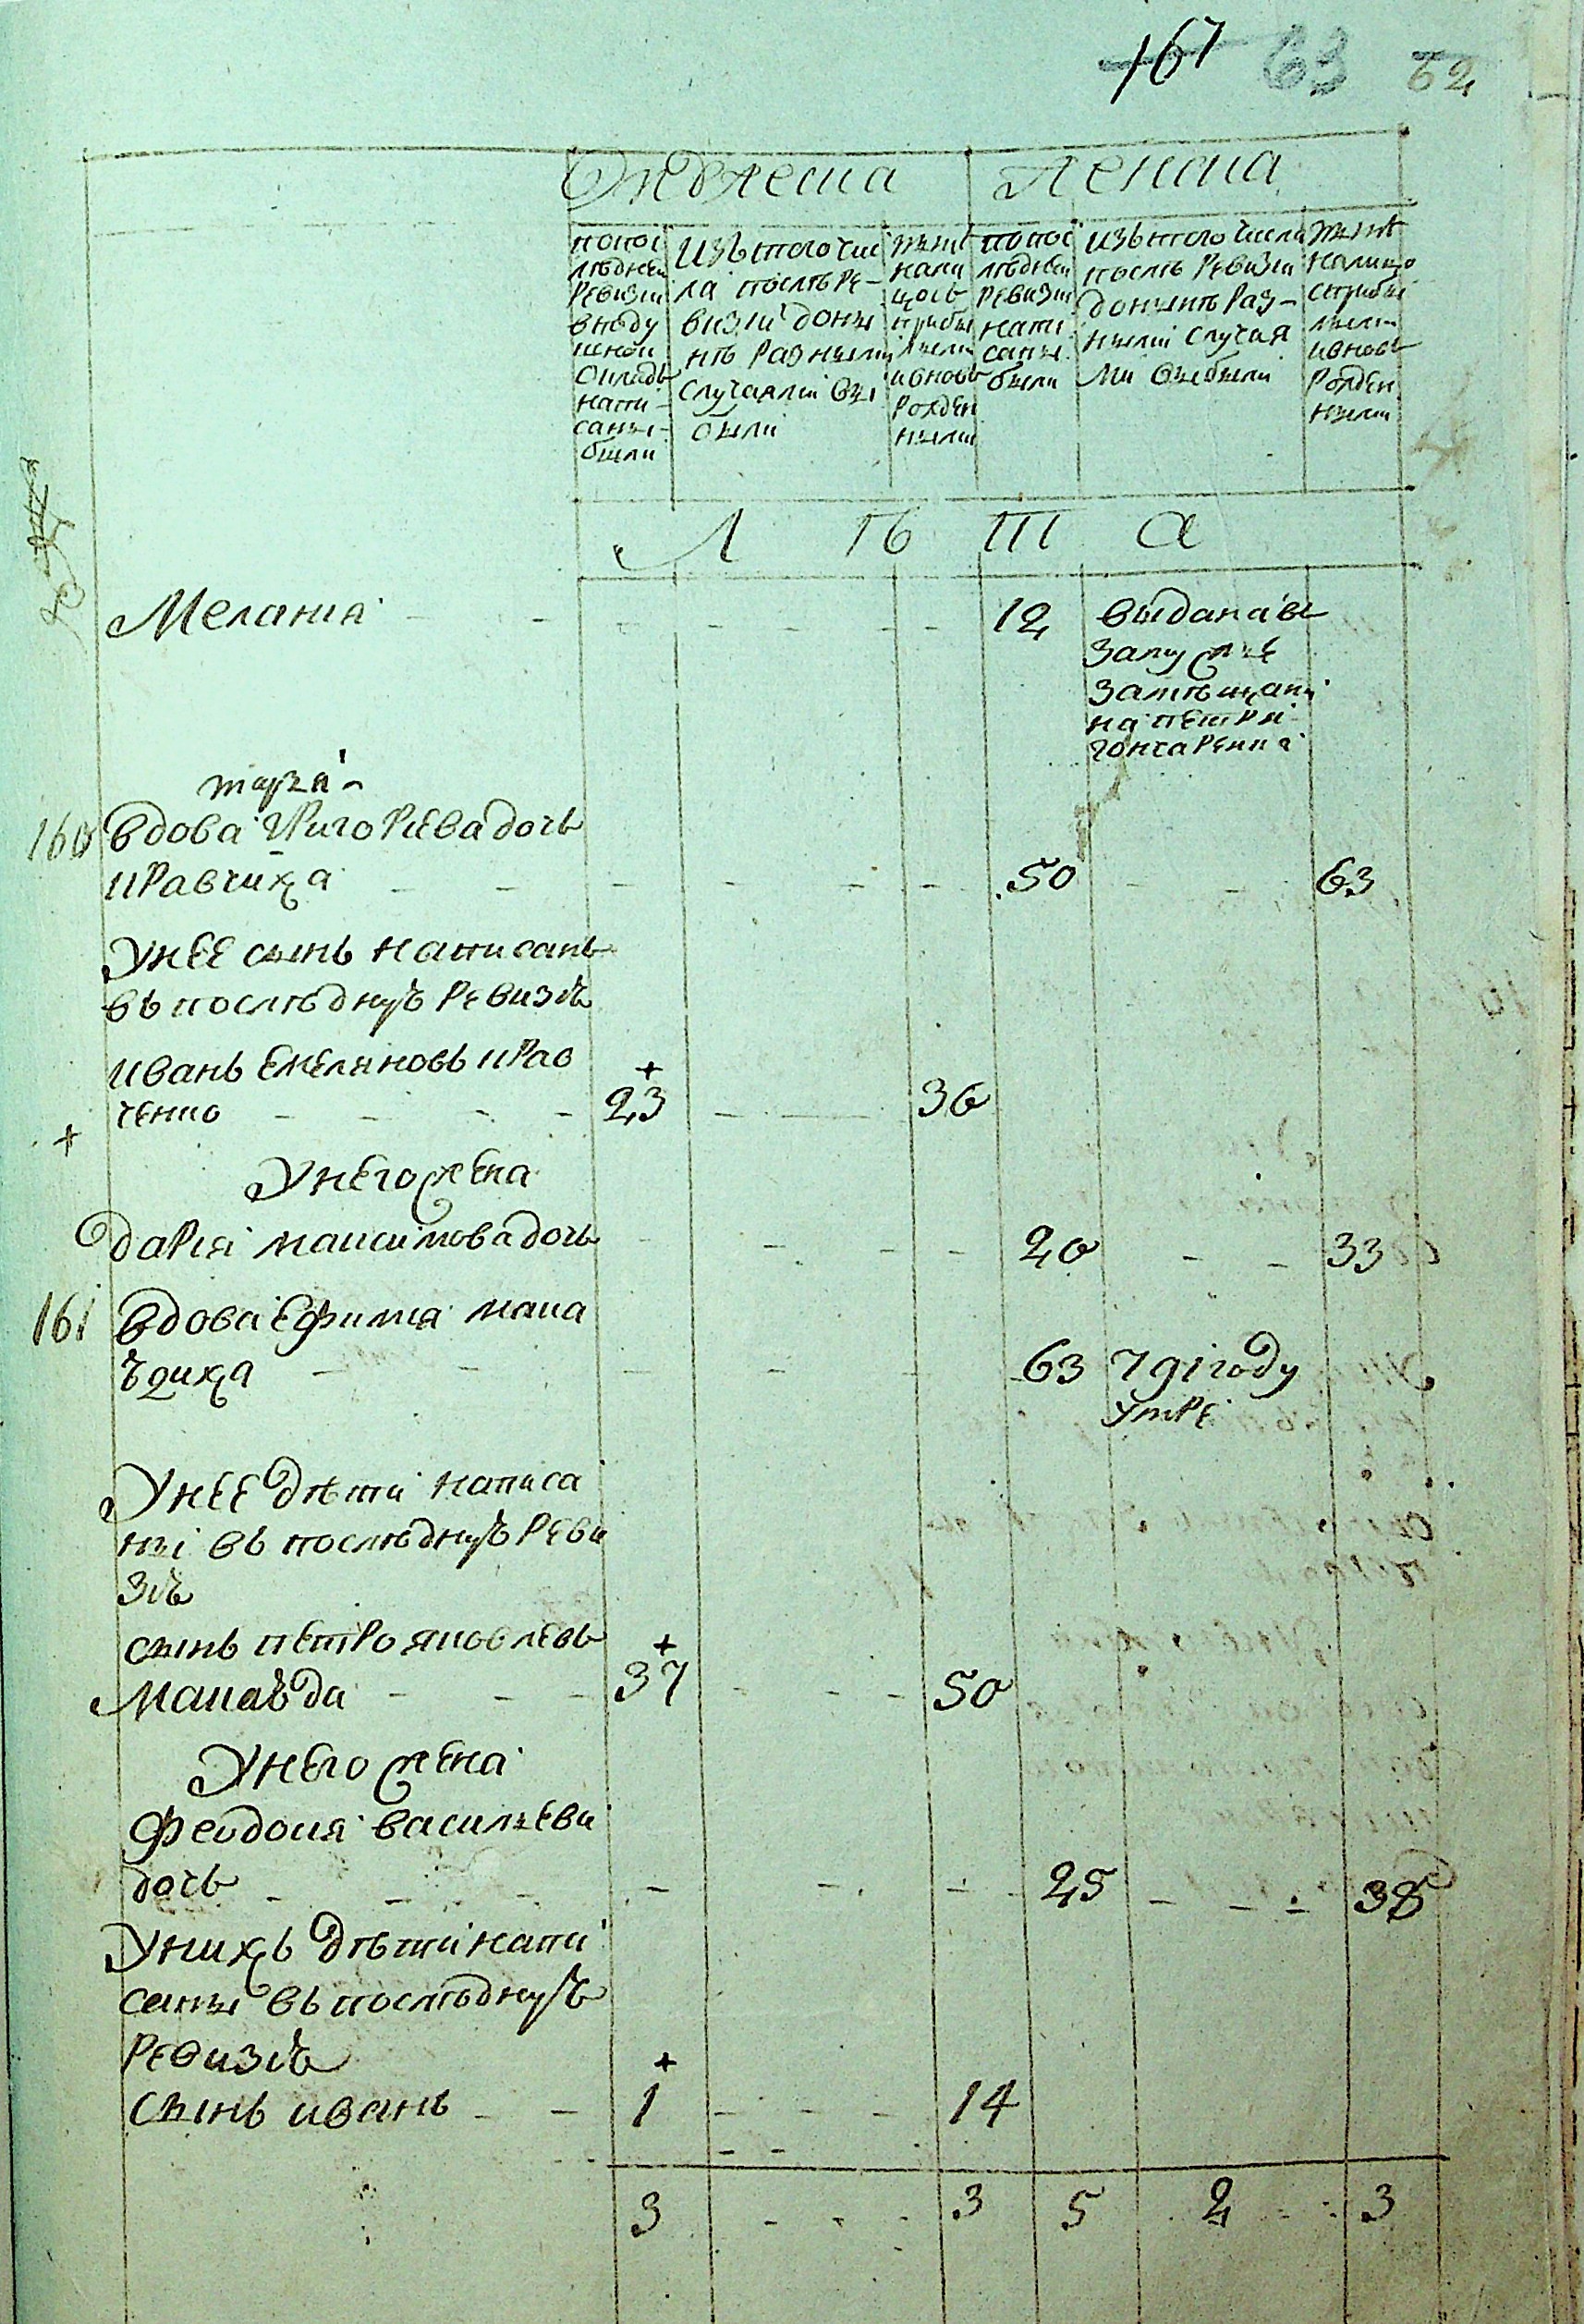 167 63 62
Мужеска Женска
по пос
лѣдней
ревизіи
в поду
шной
окладъ
напи-
саны
были
изъ того чис
ла послѣ ре-
визіи до ны
нѣ разными
случаями вы
были
нынѣ
нали
цось
прибы
лыми
и вновь
рожден
ными
по пос
лѣдней
ревизіи
напи
саны
были
изъ того числа
послѣ ревизіи
до нынѣ раз-
ными случая
ми выбыли
нынѣ
налицо
с прибы
лыми
и вновь
рожден
ными
Л ѣ т а
Меланія 12 выдана въ
замужже
за мѣщани
на Петра
Гончаренка
160 вдова Григориева дочь
кравчиха 50 63
У нее сынъ написанъ
въ последнуѣ ревизіѣ
иванъ Емеляновъ крав
ченко 23 36
У него жена
дария максимова дочь 20 33
161 вдова Ефимия мака
ѣдиха 63 79і году
умре
У нее дѣти написа
ні въ послѣднуѣ реви
зіѣ
сынъ петро яковлевъ
Макаѣда 37 50
У него жена
феодосия васильева
дочь 25 38
У нихъ дѣти напи
саны въ послѣднуѣ
ревизіѣ
сынъ иванъ 1 14
3 3 5 2 3